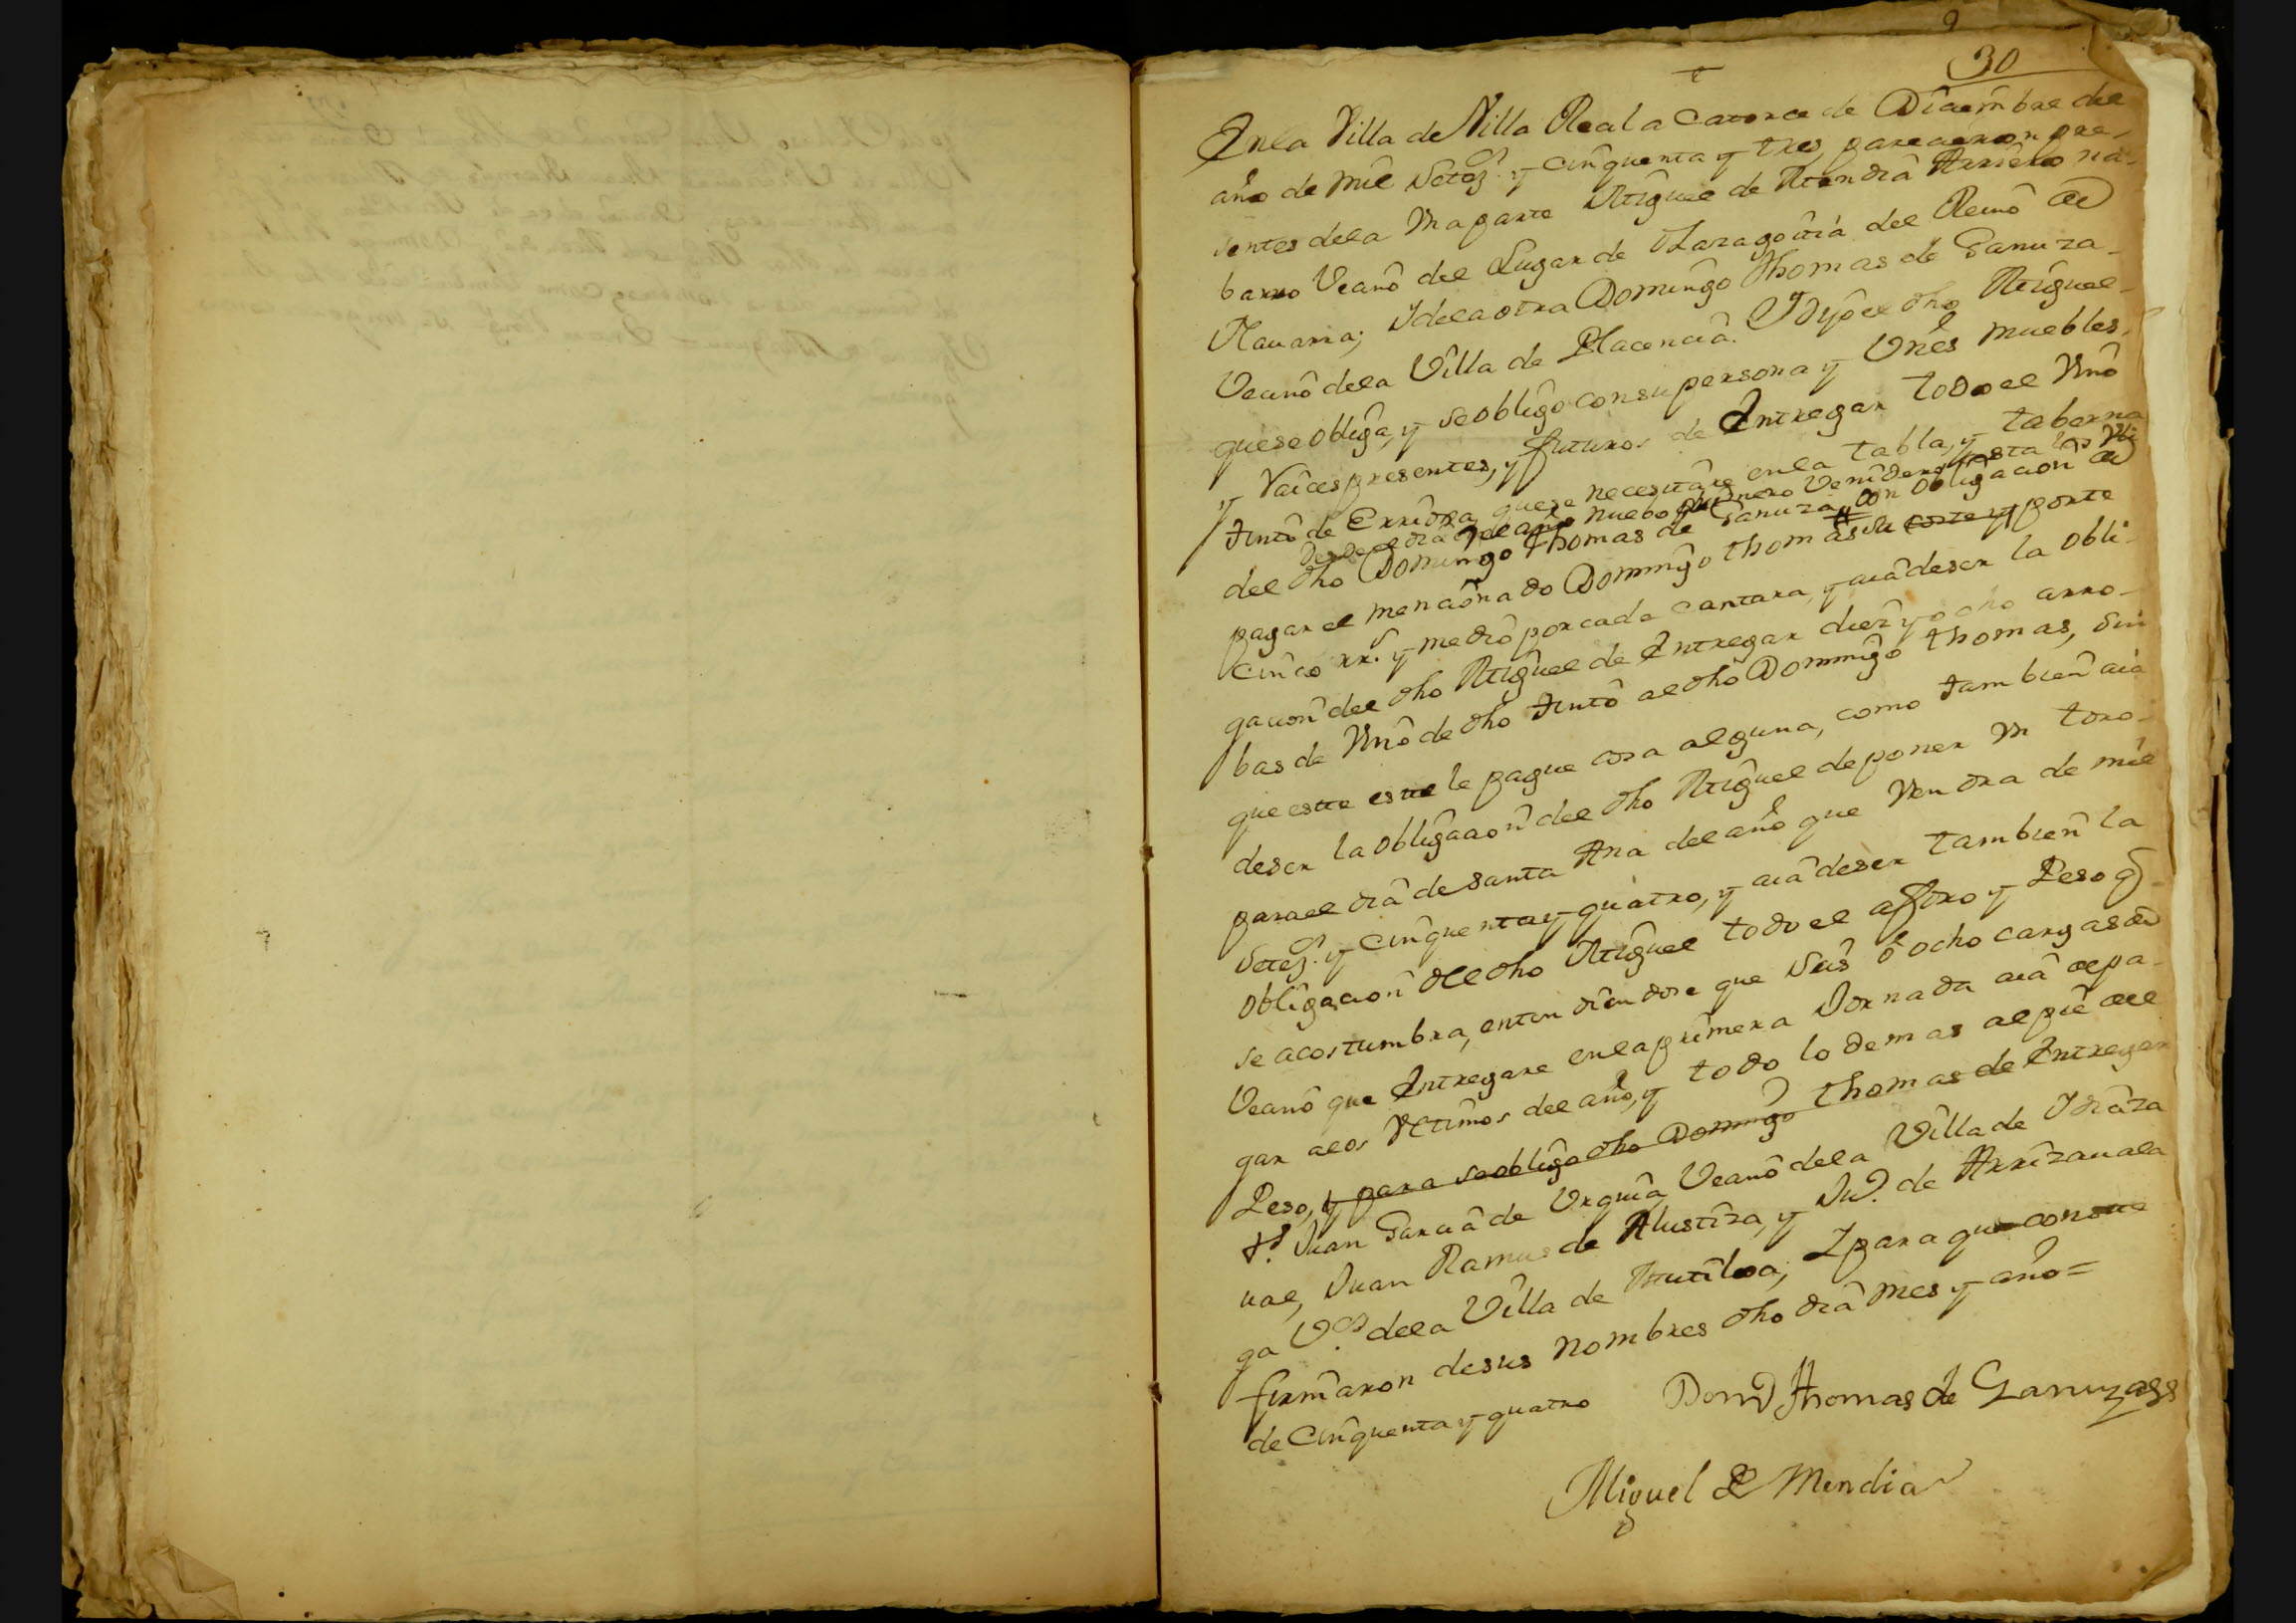 9
30
En la Villa de Villa Real a Catorce de Diciembre del
año de mil Setez.s y cinquenta y tres parecieron pre-
sentes dela Una parte Miguel de Mendia Arriero na-
barro Vecino del Lugar de del Reino de
Navarra; Y dela otra Domingo Thomas de Ganuza
Vecino dela Villa de Placencia. Y Dijo el dho Miguel
que se obliga, y se obligo con su persona y Vnes muebles
y Raices presentes, y futuros de Entregar todo el Vino
tinto de que se necesitare en la tabla, y taberna
Desde el dia de año nuebo primero Venidero
del dho Domingo Thomas de Ganuza, con obligacion de
pagar el mencionado Domingo thomas su porte
Cinco rr.s y medio por cada cantara, y aia de ser la obli-
gacion del dho Miguel de Entregar diez y ocho arro-
bas de Vino de dho tinto al dho Domingo thomas, Sin
que este este le pague cosa alguna, como tambien aia
de ser la obligacion del dho Miguel de poner Vn toro
para el dia de Santa Ana del año que Vendra de mil
Setez.s y Cinquenta y quatro, y aia de ser tambien la
obligacion del dho Miguel todo el aforo y Peso q
se acostumbra, entendiendose que Seis o ocho cargas de
Vecino que Entregare en la primera Jornada aia de pa-
gar a los Vltimos del año, y todo lo demas al pie del
Peso, y para se obligo dho Domingo thomas de Entregar
t.s Juan Garcia de Urquia Vecino dela Villa de Idiaza
ual, Juan Ramus de Alustiza, y Ju.o de Arrizauala
ga V.os dela Villa de Mutiloa; Y para que conste
firmaron de sus nombres dho dia mes y año =
de Cinquenta y quatro
Domo Thomas de Ganuza
Miguel de Mendia